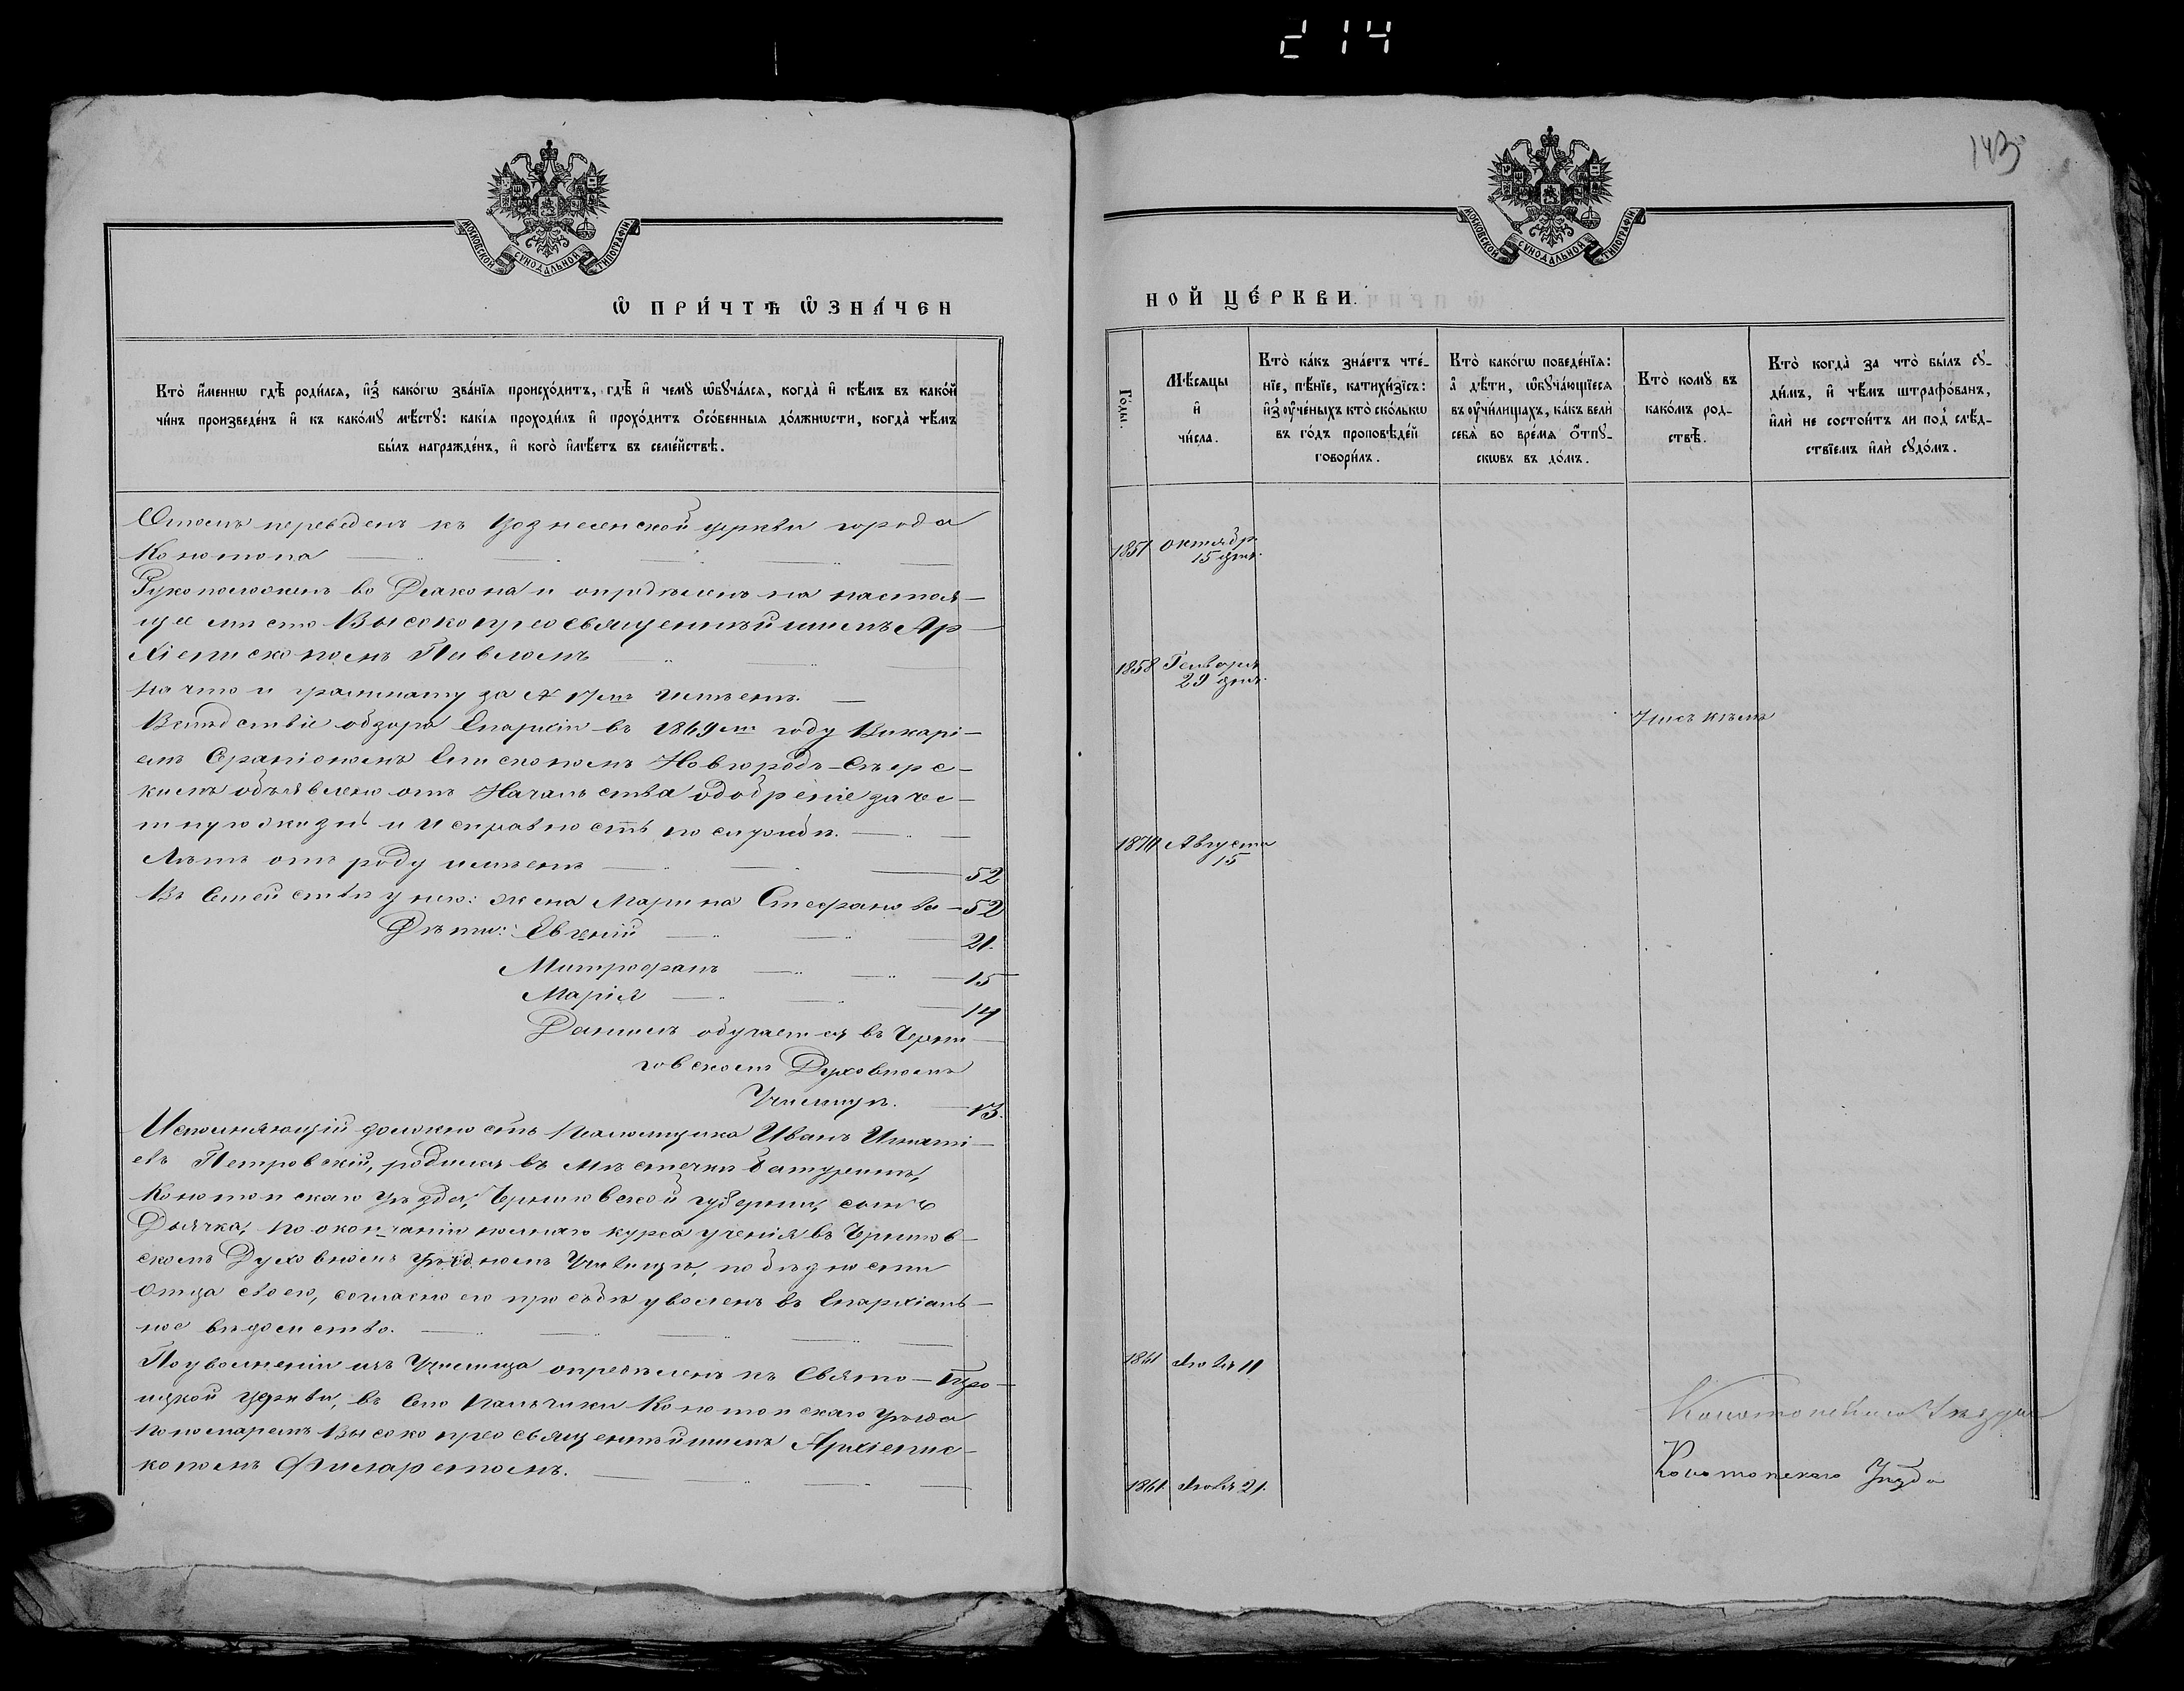 214
143
МОСКОВСКОЙ СѴНОДАЛЬНОЙ ТИПОГРАФІИ
Ѡ ПРИ́ЧТѢ ѠЗНА́ЧЕН
Кто̀ и҆́меннѡ гдѣ̀ роди́лся, и҆з̾ како́гѡ зва́нїя происхо́дитъ, гдѣ̀ и҆ чемꙋ̀ ѡ҆бꙋча́лся, когда̀ и҆ кѣ́мъ въ како́й
чи́нъ произведе́нъ и҆ къ како́мꙋ мѣ́стꙋ: какі́я проходи́лъ и҆ прохо́дитъ ѻ҆со́бенныя до́лжнѡсти, когда̀ чѣ́мъ
бы́лъ награжде́нъ, и҆ кого̀ и҆мѣ́етъ въ семе́йствѣ.
Отсель переведенъ къ Вознесенской церкви города
Конотопа
Рукоположенъ во Диакона и опредѣленъ на настоя-
щее мѣсто Высокопреосвященнѣйшимъ Ар-
хіепископомъ Павломъ
На что и граммату за № 17мъ имѣетъ.
Вслѣдствіе обзора Епархіи въ 1869мъ году Викарі-
емъ Серапіономъ Епископомъ Новгородъ-Сѣверс-
кимъ объявлено отъ Начальства одобреніе за чес-
тную жизнь и исправность по службѣ.
Лѣтъ отъ роду имѣетъ 52
Въ Семействѣ у него: жена Марина Стефанова 52
Дѣти: Евгеній 21.
Митрофанъ 15
Марія 14
Даниилъ обучается въ Черни-
говскомъ Духовномъ
Училищѣ. 13.
Исполняющій должность Псаломщика Иванъ Игнаті-
евъ Петровскій, родился въ Мѣстечкѣ Батуринѣ,
Конотопскаго Уѣзда, Черниговской губерніи, сынъ
Дьячка, по окончаніи полнаго курса ученія въ Чернигов-
скомъ Духовномъ Уѣздномъ Училищѣ, по бѣдности
Отца своего, согласно его просьбѣ уволенъ въ Епархіаль-
ное вѣдомство.
По увольненіи изъ Училища опредѣленъ къ Свято-Тро-
ицкой Церкви, въ Село Пальчики Конотопскаго Уѣзда
Пономаремъ Высокопреосвященнѣйшимъ Архіепис-
копомъ Филаретомъ.
МОСКОВСКОЙ СѴНОДАЛЬНОЙ ТИПОГРАФІИ
НОЙ ЦЕ́РКВИ.
Го́ды.
Мѣ́сяцы
и҆
чи́сла.
Кто̀ ка́къ зна́етъ чте́-
нїе, пѣ́нїе, катихи́зїсъ:
и҆з̾ ᲂу҆че́ныхъ кто̀ ско́лькѡ
въ го́дъ проповѣ́дей
говори́лъ.
Кто̀ како́гѡ поведе́нїя:
а҆ дѣ́ти, ѡ҆бꙋча́ющїеся
въ ᲂу҆чи́лищахъ, ка́къ велѝ
себя̀ во вре́мя ѻ҆́тпꙋ-
скѡвъ въ до́мъ.
Кто̀ комꙋ̀ въ
како́мъ род-
ствѣ̀.
Кто̀ когда̀ за что̀ бы́лъ сꙋ-
ди́мъ, и҆ чѣ́мъ штрафо́ванъ,
и҆лѝ не состои́тъ ли под̾ слѣ́д-
ствїемъ и҆лѝ сꙋдо́мъ.
1857 Октября
15 дня.
1858 Генваря
29 дня.
Ни съ кѣмъ
1870 Августа
15
1861 Іюля 11
Конотопскаго Уѣзда
1861 Іюля 21.
Конотопскаго Уѣзда